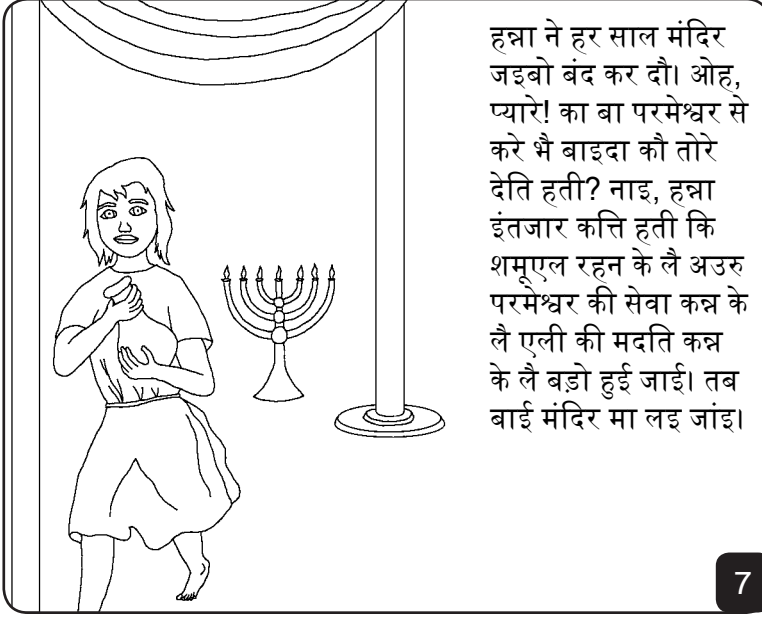 हन्ना ने हर साल मंदिर
जइबो बंद कर दौ। ओह,
प्यारे! का बा परमेश्वर से
करे भै बाइदा कौ तोरे
देति हती? नाइ, हन्ना
इंतजार कत्ति हती कि
शमूएल रहन के लै अउरु
परमेश्वर की सेवा कन्न के
लै एली की मदति कन्न
के लै बड़ो हुई जाई। तब
बाई मंदिर मा लइ जांइ।
7